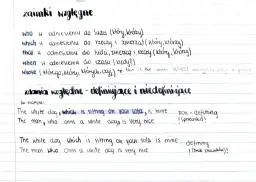 zaimki względne
who w odniesieniu do ludzi (który, którzy)
which w odniesieniu do rzeczy i zwierząt (który, którzy)
that w odniesieniu do ludzi, zwierząt i rzeczy (który, którzy)
when w odniesieniu do czasu (kiedy)
whose (którego, której, których, czyj) → this is the man WHOSE
zdania względne - definiujące i niedefiniujące
The white dog, which is sitting on your sofa, is mine. non-defining
The man, who owns a white dog is very nice
The white dog which is sitting on your sofa is mine. defining
The man who owns a white dog is very nice